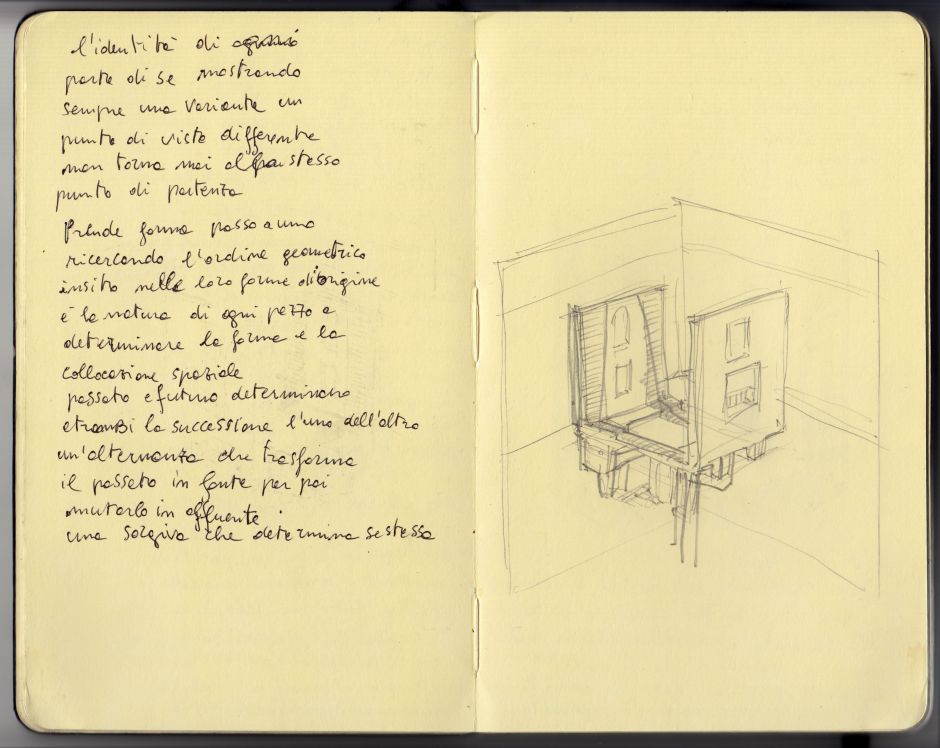 l'identità di ognuno
parte di se mostrando
sempre una variante un
punto di vista differente
non torna mai al stesso
punto di partenza
Prende forma passo a uno
ricercando l'ordine geometrico
insito nelle loro forme di origine
è la natura di ogni pezzo a
determinare la forma e la
collocazione spaziale
passato e futuro determinano
entrambi la successione l'uno dell'altro
un'alternanza che trasforma
il passato in fonte per poi
mutarlo in affluente
una sorgiva che determina se stessa